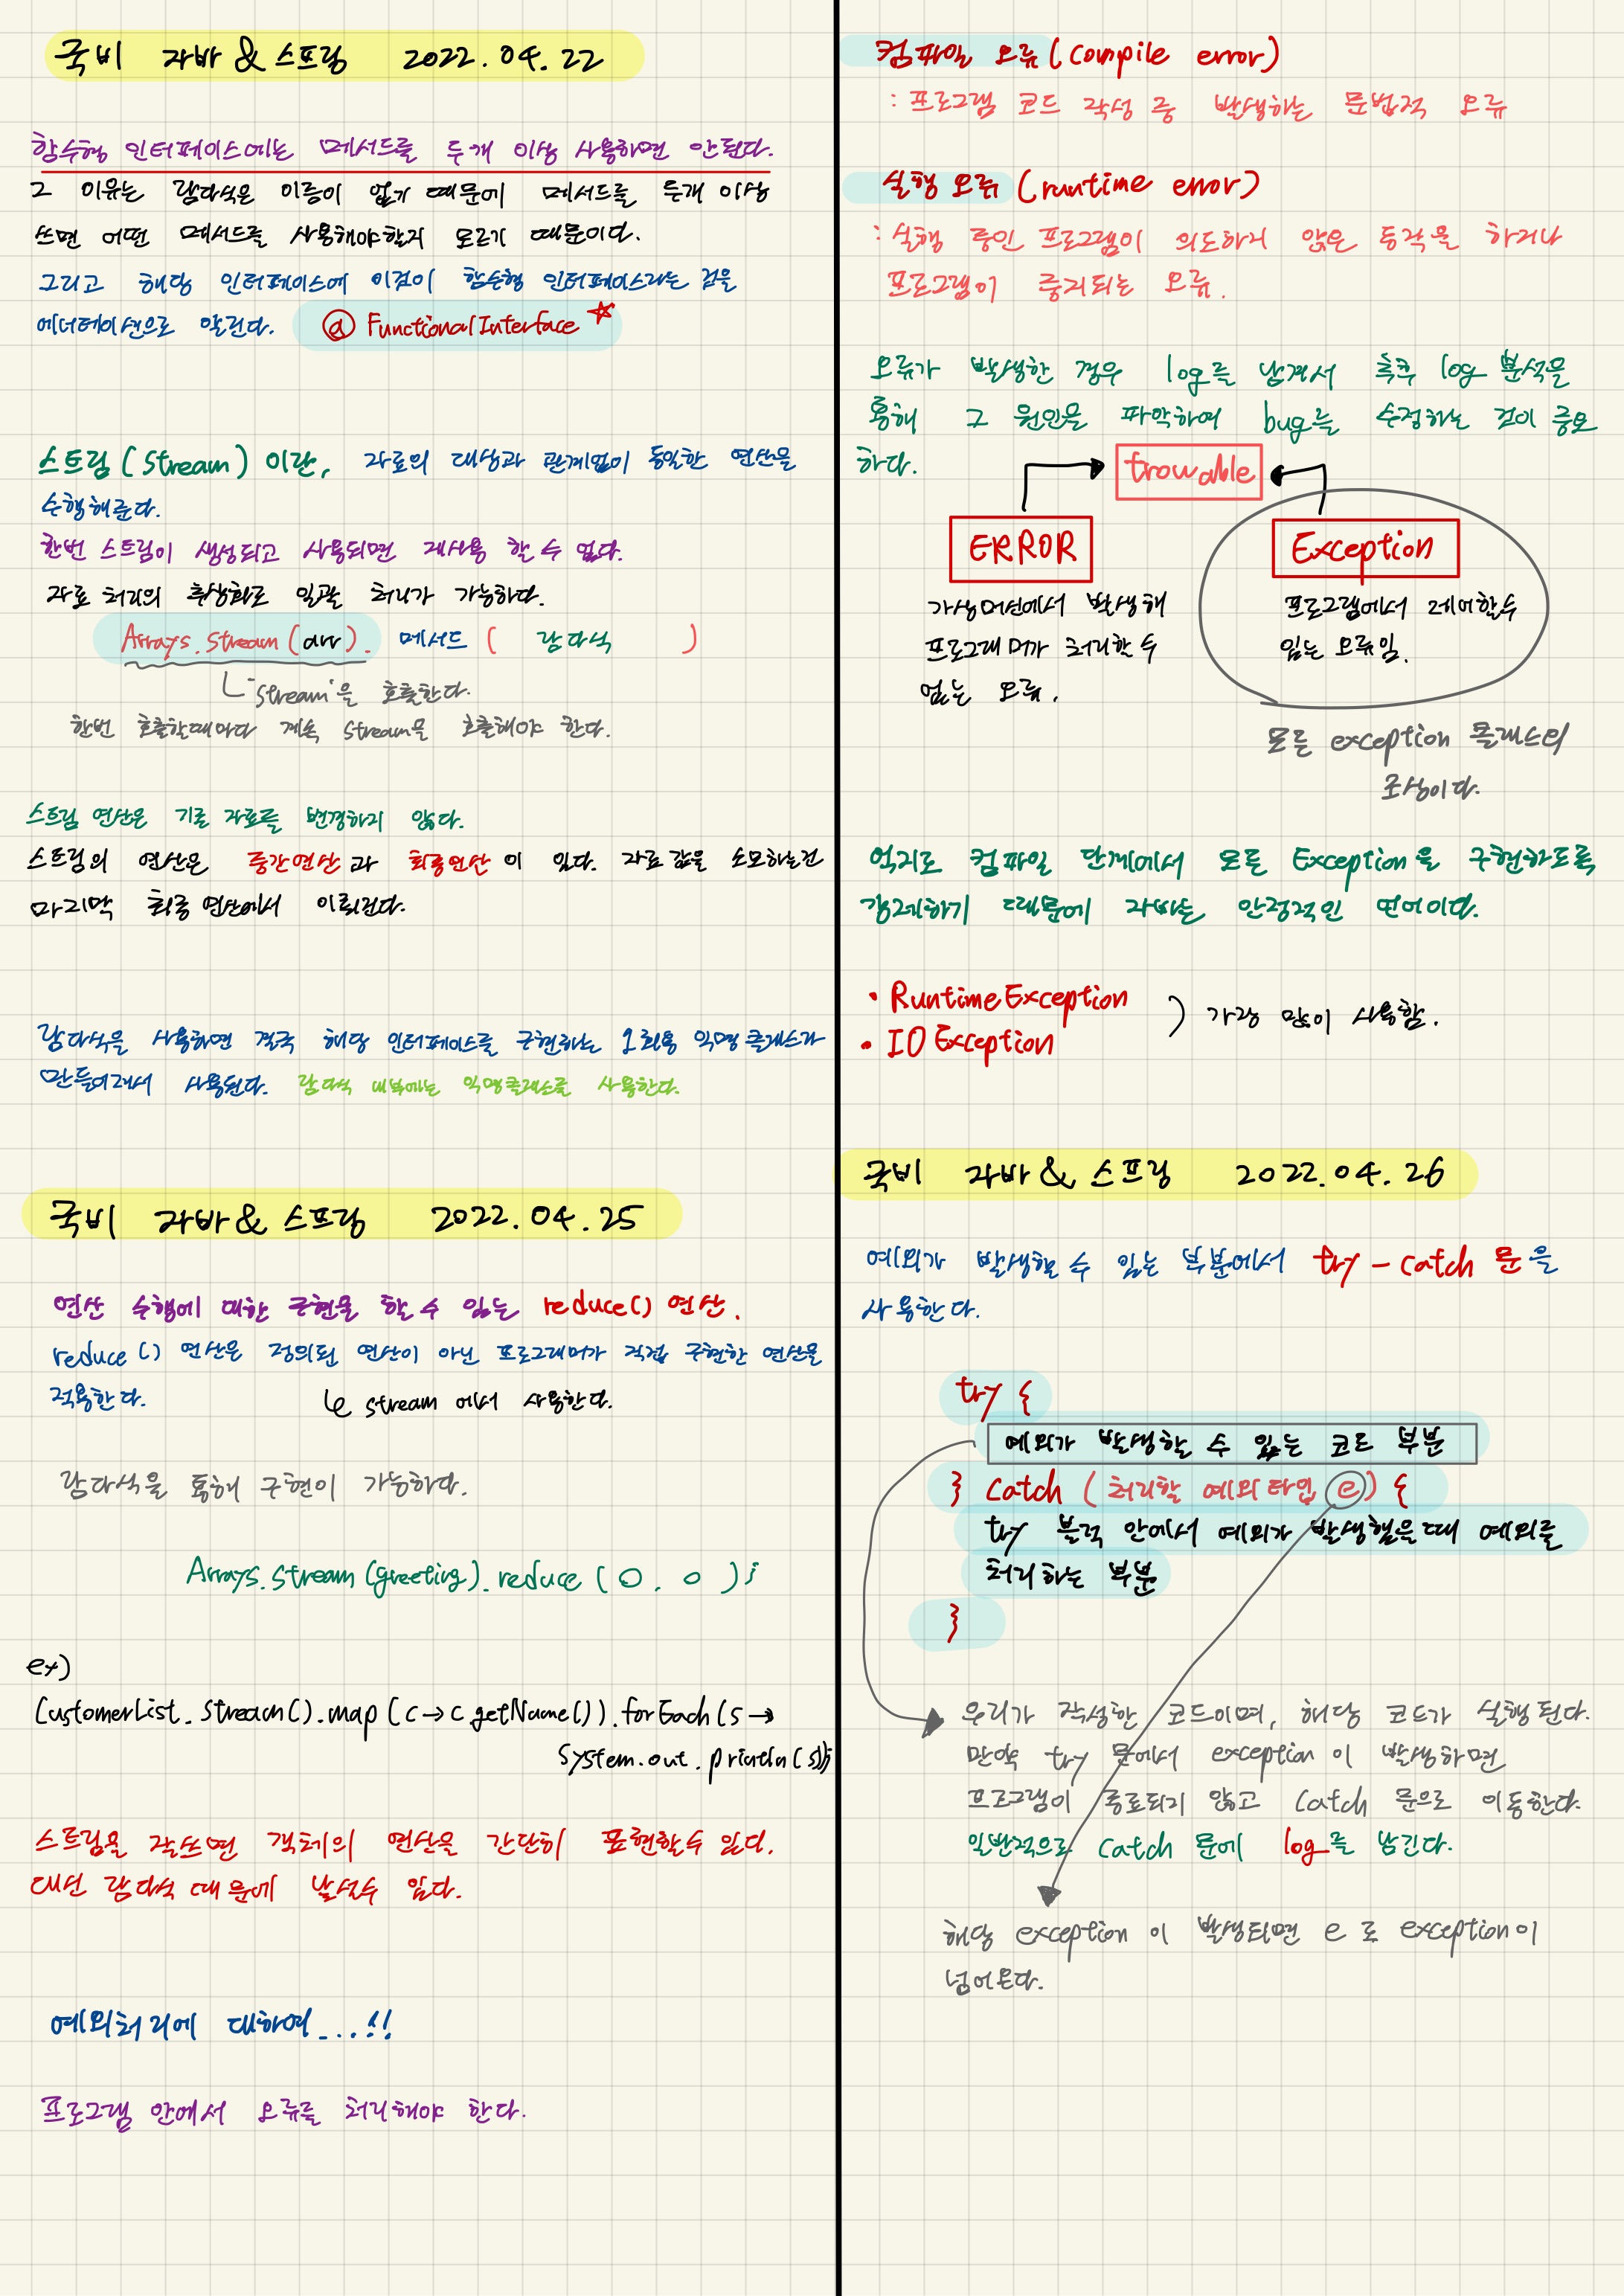 국비 자바 & 스프링 2022.04.22
함수형 인터페이스에는 메서드를 두개 이상 사용하면 안된다.
그 이유는 람다식은 이름이 없기 때문에 메서드를 두개 이상
쓰면 어떤 메서드를 사용해야할지 모르기 때문이다.
그리고 해당 인터페이스에 이것이 함수형 인터페이스라는 걸을
에너테이션으로 알린다. @ FunctionalInterface ☆
스트림(Stream) 이란, 자료의 대상과 관계없이 동일한 연산을
수행해준다.
한번 스트림이 생성되고 사용되면 재사용 할 수 없다.
자료 처리의 추상화로 일괄 처리가 가능하다.
Arrays.stream(arr). 메서드 ( 람다식 )
stream을 호출한다.
한번 호출할때마다 계속 stream을 호출해야 한다.
스트림 연산은 기존 자료를 변경하지 않다.
스트림의 연산은 중간연산과 최종연산이 있다. 자료 값을 소모하는건
마지막 최종 연산에서 이뤄진다.
람다식을 사용하면 결국 해당 인터페이스를 구현하는 1회용 익명 클래스가
만들어져서 사용된다. 람다식 내부에는 익명클래스를 사용한다.
국비 자바 & 스프링 2022.04.25
연산 수행에 대한 구현을 할 수 있는 reduce() 연산.
reduce() 연산은 정의된 연산이 아닌 프로그래머가 직접 구현한 연산을
적용한다. ↳ stream 에서 사용한다.
람다식을 통해 구현이 가능하다.
Arrays.stream(greeting).reduce ( O , O );
ex)
CustomerList.stream().map(c→c.getName()).forEach(s→
System.out.println(s));
스트림을 잘쓰면 객체의 연산을 간단히 표현할수 있다.
대신 람다식 때문에 낯설수 있다.
예외처리에 대하여...!!
프로그램 안에서 오류를 처리해야 한다.
컴파일 오류(compile error)
: 프로그램 코드 작성 중 발생하는 문법적 오류
실행 오류 (runtime error)
: 실행 중인 프로그램이 의도하지 않은 동작을 하거나
프로그램이 중지되는 오류.
오류가 발생한 경우 log를 남겨서 추후 log 분석을
통해 그 원인을 파악하여 bug를 수정하는 것이 중요
하다.
trowable
ERROR
가상머신에서 발생해
프로그래머가 처리할 수
없는 오류.
Exception
프로그램에서 제어할수
있는 오류임.
모든 exception 클래스의
조상이다.
억지로 컴파일 단계에서 모든 Exception을 구현하도록
강제하기 때문에 자바는 안정적인 언어이다.
· RuntimeException
· IO Exception
) 가장 많이 사용함.
국비 자바 & 스프링 2022.04.26
예외가 발생할 수 있는 부분에서 try - catch 문을
사용한다.
try {
예외가 발생할 수 있는 코드 부분
} catch (처리할 예외 타입 e) {
try 블럭 안에서 예외가 발생했을때 예외를
처리하는 부분
}
우리가 작성한 코드이며, 해당 코드가 실행된다.
만약 try 문에서 exception이 발생하면
프로그램이 종료되지 않고 catch 문으로 이동한다.
일반적으로 catch 문에 log를 남긴다.
해당 exception이 발생되면 e로 exception이
넘어온다.